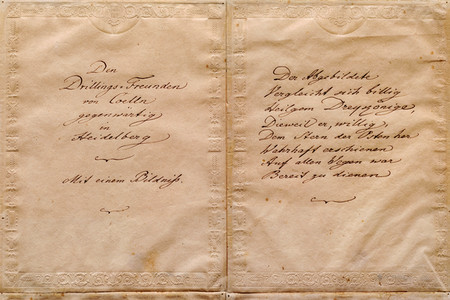 Den
Drillings=Freunden
von Coelln
gegenwärtig
in
Heidelberg
Mit einem Bildniß.
Der Abgebildete
Vergleicht sich billig
Heilgem Dreykönige,
Dieweil er, willig
Dem Stern der Osten her
Wahrhaft erschienen
Auf allen Wegen war
Bereit zu dienen